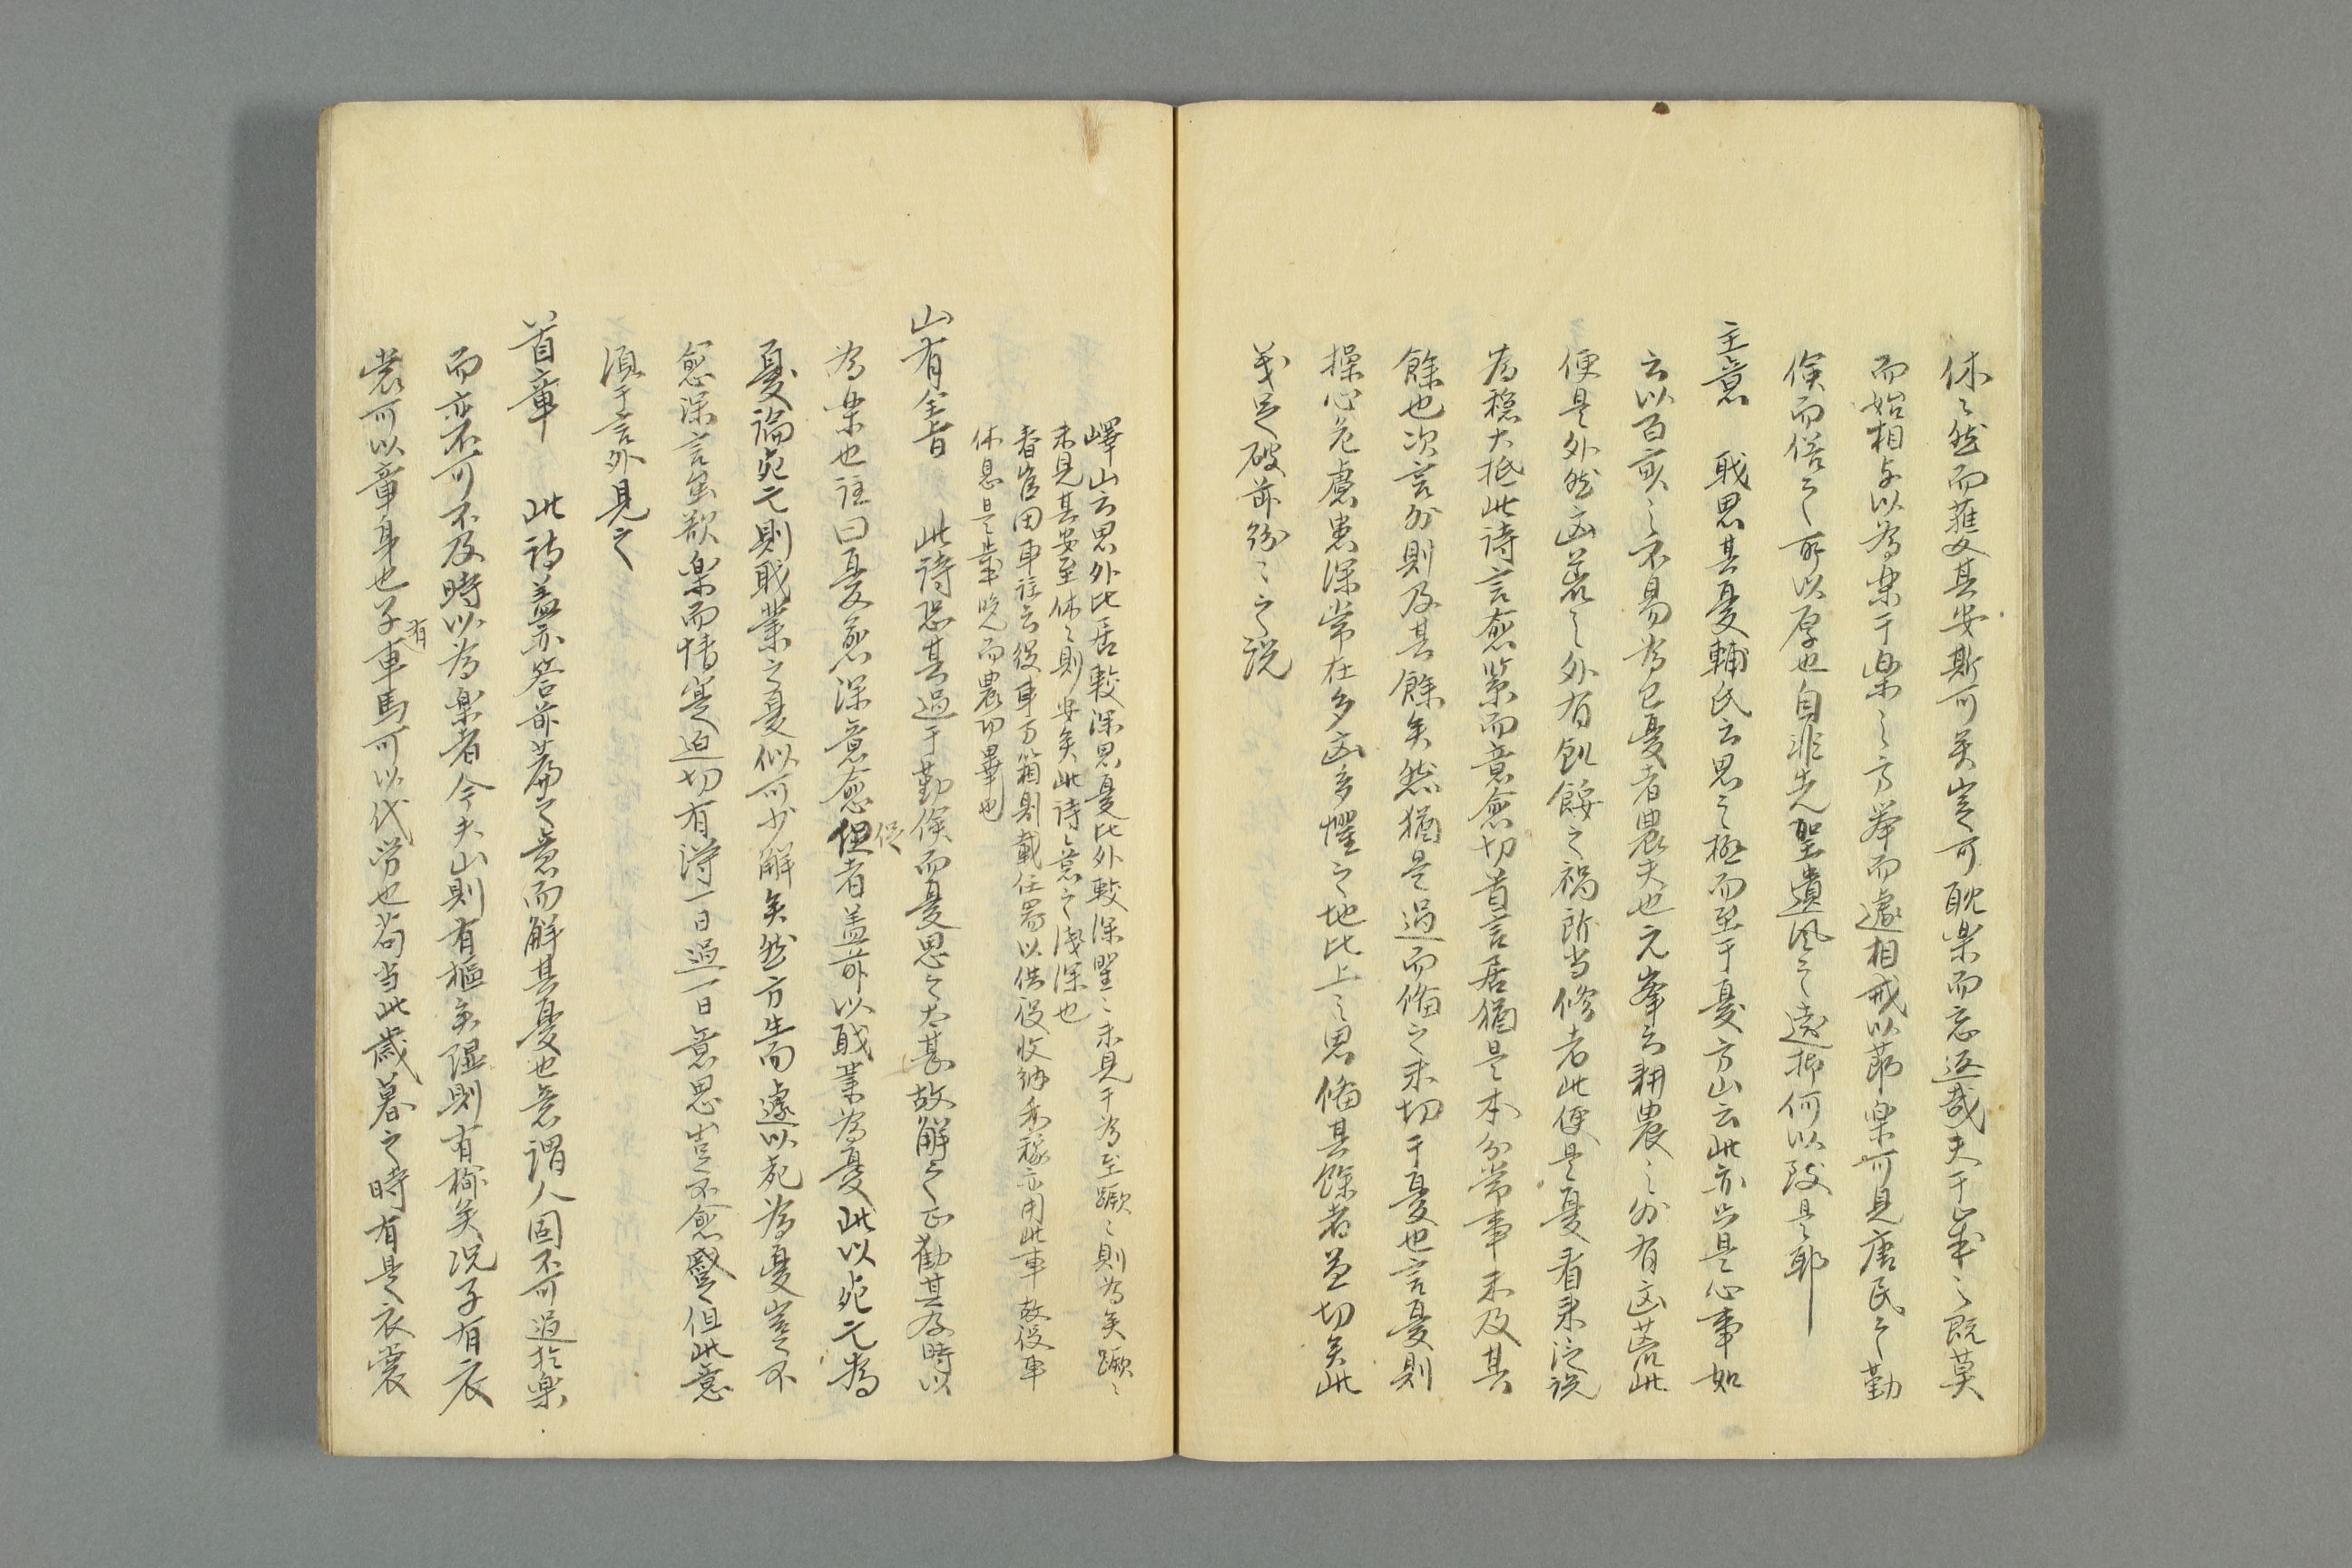 休〻然而獲其安斯可矣豈可耽楽而忘返哉夫千歳之既莫
而始相与以為楽于楽之方挙而遽相戒以荒楽可見唐民之勤
倹而俗之所以厚也自非先聖遺風之遠抑何以致是耶
主意　職思其憂輔氏云思之極而至于憂方山云此亦只是心事如
云以百畝之不易為己憂者農夫也元峯云耕農之外有凶荒此
便是外然凶荒之外有飢餒之禍所当修者此便是憂看来泛説
為穏大抵此詩言愈緊而意愈切首言居猶是本分常事未及其
餘也次言外則及其餘矣然猶是過而備之未切于憂也言憂則
操心危慮患深常在多凶多懼之地比上之思備其餘者益切矣此
義足破前紛〻之説
嶧山云思外比居較深思憂比外較深瞿〻未見于為至蹶〻則為矣蹶〻
未見其安至休〻則安矣此詩意之浅深也
春官田車註云役車方箱則載任器以供役收納禾稼亦用此車故役車
休息是歳晩而農功畢也
山有全旨　此詩恐其過于勤倹而憂思之太甚故解之正勧其及時以
為楽也註曰憂愈深意愈促但者盖前以職業為憂此以死亡為
憂論死亡則職業之憂似可少解矣然方生而遽以死為憂豈不
愈深言虽欲楽而情寔迫切有得一日過一日意思豈不愈蹙但此意
須于言外見之
首章　此詩盖亦答前篇之意而解其憂也意謂人固不可過於楽
而亦不可不及時以為楽者今夫山則有樞矣隰則有榆矣况子有衣
裳可以章身也子有車馬可以代労也苟当此歳暮之時有是衣裳